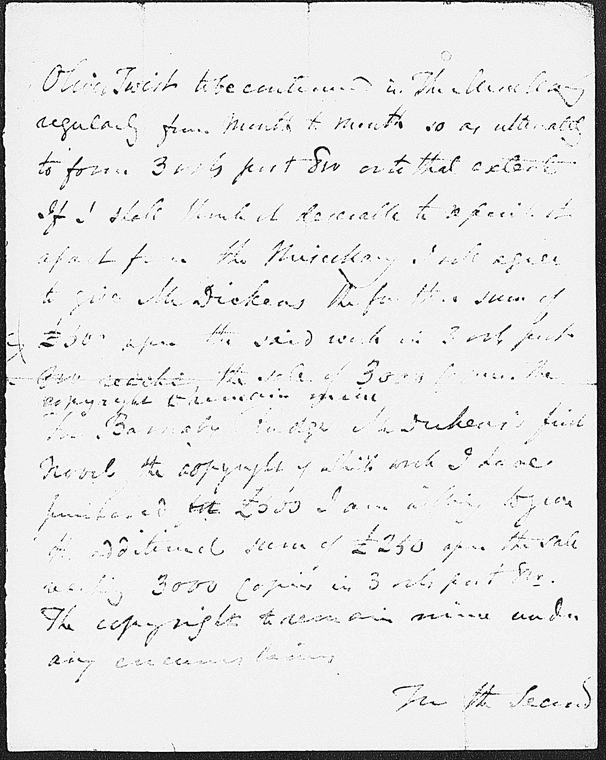 Oliver Twist to be continued in The Miscellany
regularly from Month to Month so as ultimately
to form 3 vols post 8vo or to that extent
If I shall think it desirable to reprint it
apart from the Miscellany I will agree
to give Mr Dickens the further sum of
£50 upon the said work in 3 vols post
8vo reaching the sale of 3000 copies the
copyright to remain mine
For Barnaby Rudge Mr Dickens's first
Novel the copyright of which work I have
purchased for £500 I am willing to give
the additional sum of £250 upon the sale
reaching 3000 Copies in 3 vols post 8vo.
The copyright to remain mine under
any circumstances
For the Second